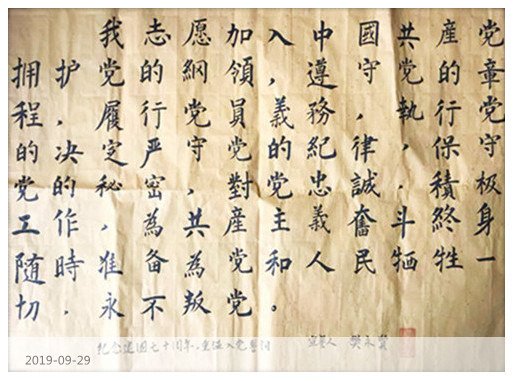 我志愿加入中國共産党
拥护党的綱領，遵守党的章
程，履行党員義務，執行党
的决定严守党的紀律，保守
党的秘密，對党忠誠，積极
工作，為共産主義奮斗終身
随時，准备為党和人民牺牲一
切，永不叛党。
纪念建国七十周年，重温入党誓词 宣誓人 樊永
2019-09-29